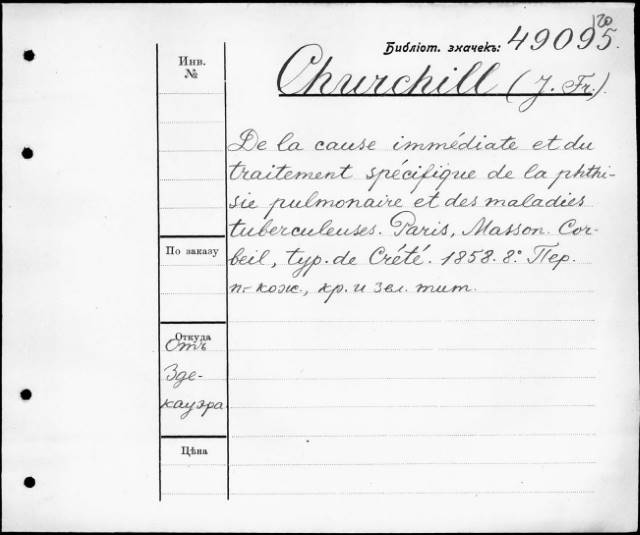 20
Библіот. значекъ: 49095.
Инв.
№
Churchill (J. Fr.).
De la cause immédiate et du
traitement spécifique de la phthi-
sie pulmonaire et des maladies
tuberculeuses. Paris, Masson. Cor-
beil, typ. de Crété. 1858. 8º. Пер.
п.-кож., кр. и зол. тит.
По заказу
Откуда
Отъ
Зде-
кауэра
Цѣна